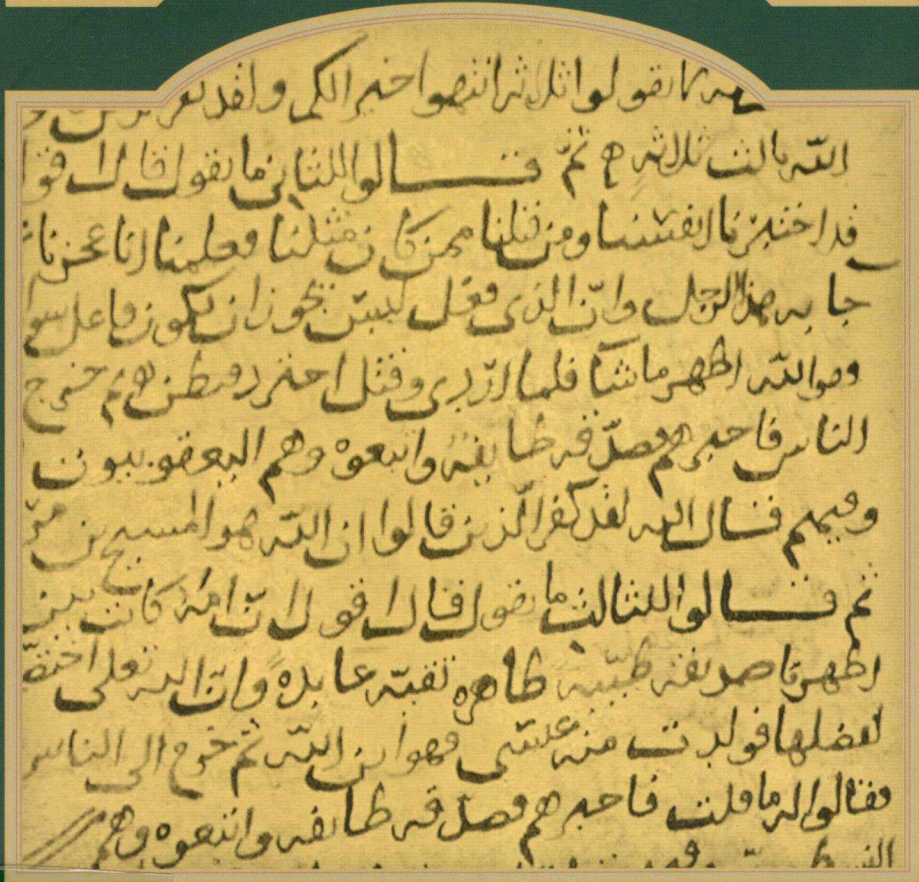 ما تقولوا ثلاثة انتهوا خيرا لكم ولقد
الله ثالث ثلاثة ثم قالوا للثاني ما تقول قال اقول
قد اختبرنا انفسنا ومن قبلنا ممن كان مثلنا فعلمنا انا عجزنا
جا به هذا الرجل وان الذي فعل ليس يجوز ان يكون فاعل سو
وهو الله اظهر ما شا فلما وقتل ثم خرج
الناس فاخبرهم فصدقه طايفه واتبعوه وهم اليعقوبيون
وفيهم قال الله لقد كفر الذين قالوا ان الله هو المسيح بن مر
ثم قالوا للثالث ما تقول قال اقول ان امه كانت بين
اظهرنا صديقة طيبة طاهره تقيه عابده وان الله تعلى
لفضلها فولدت منه عيسى فهو ابن الله ثم خرج الى الناس
فقالوا له ما قلت فاخبرهم فصدقه طايفه واتبعوه وهم